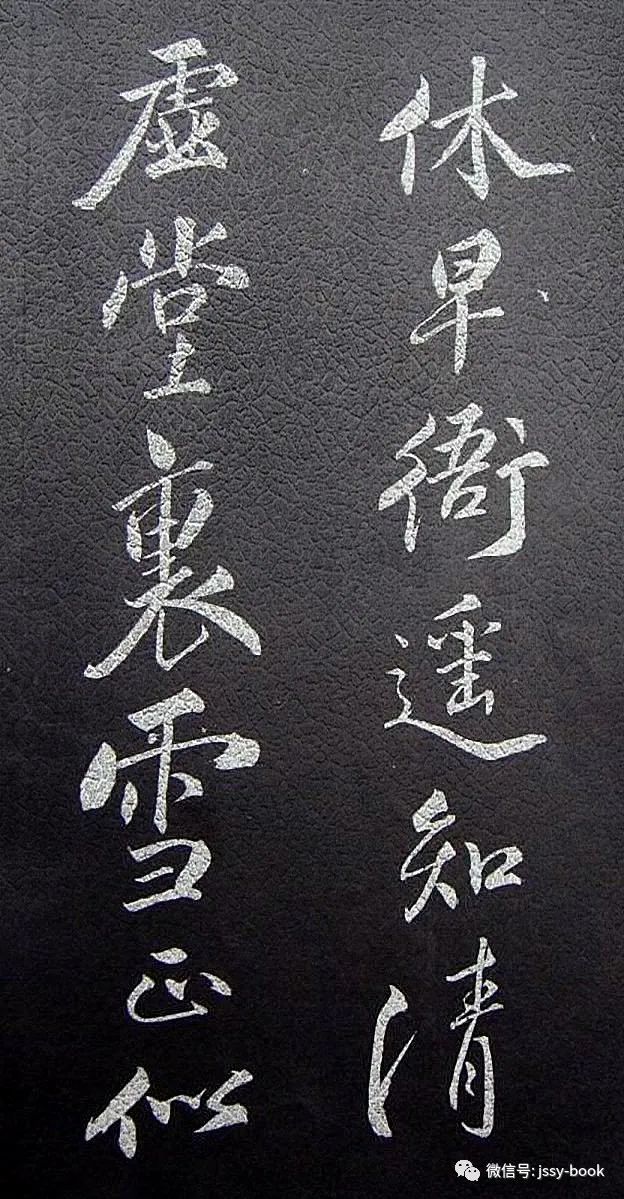 休早衙遥知清
虚堂裏雪正似
微信号: jssy-book